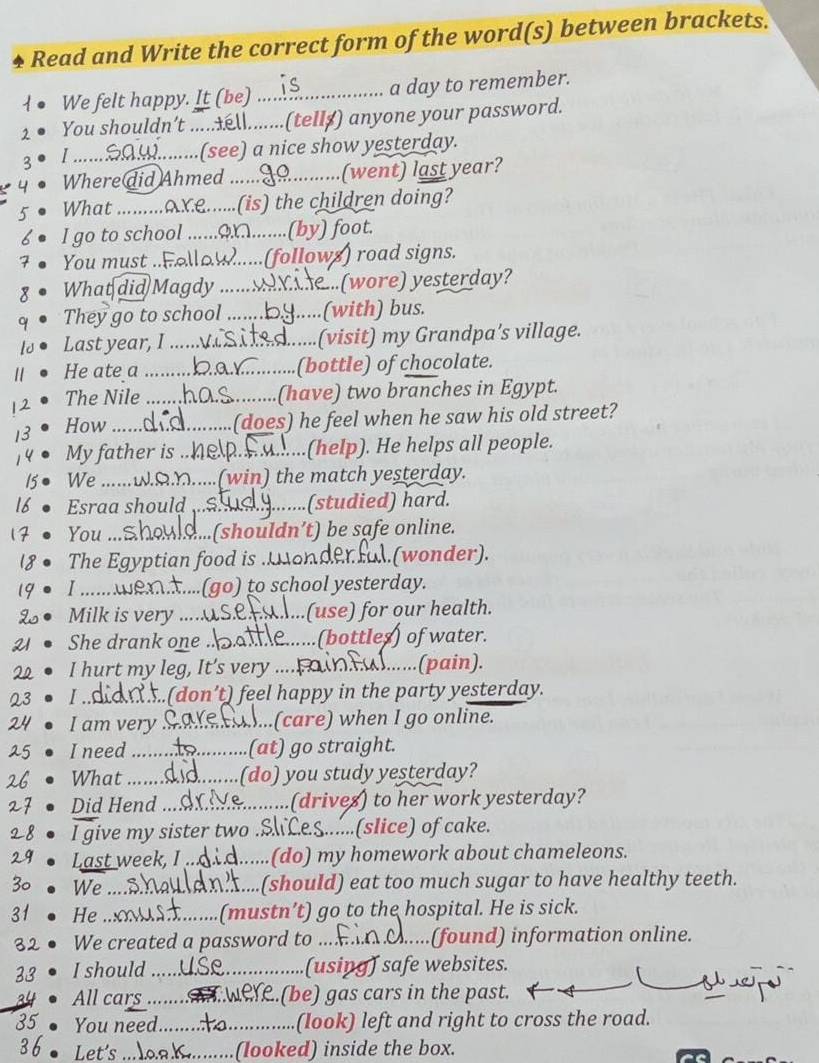 ♠ Read and Write the correct form of the word(s) between brackets.
1 • We felt happy. It (be) ......is...... a day to remember.
2 • You shouldn't .....tell.......(tells) anyone your password.
3 • I .......saw........(see) a nice show yesterday.
4 • Where did Ahmed ......go............(went) last year?
5 • What .........are......(is) the children doing?
6 • I go to school ......on.......(by) foot.
7 • You must ..Follow.....(follows) road signs.
8 • What did Magdy ......write..(wore) yesterday?
9 • They go to school .......by.....(with) bus.
10 • Last year, I ......visited.....(visit) my Grandpa's village.
11 • He ate a .........bar..........(bottle) of chocolate.
12 • The Nile ......has.........(have) two branches in Egypt.
13 • How ......did.........(does) he feel when he saw his old street?
14 • My father is ..helpful....(help). He helps all people.
15 • We ......won.....(win) the match yesterday.
16 • Esraa should ..study.......(studied) hard.
17 • You ...should...(shouldn't) be safe online.
18 • The Egyptian food is .wonderful.(wonder).
19 • I ......went....(go) to school yesterday.
20 • Milk is very .....useful...(use) for our health.
21 • She drank one ..bottle......(bottles) of water.
22 • I hurt my leg, It's very ....painful......(pain).
23 • I ..didn't..(don't) feel happy in the party yesterday.
24 • I am very .careful...(care) when I go online.
25 • I need ........to..........(at) go straight.
26 • What .......did........(do) you study yesterday?
27 • Did Hend ...drive.........(drives) to her work yesterday?
28 • I give my sister two .slices......(slice) of cake.
29 • Last week, I ...did......(do) my homework about chameleons.
30 • We ....shouldn't....(should) eat too much sugar to have healthy teeth.
31 • He ..must.......(mustn't) go to the hospital. He is sick.
32 • We created a password to ...find.....(found) information online.
33 • I should .....use..............(using) safe websites.
34 • All cars ........were.(be) gas cars in the past.
35 • You need.........to..............(look) left and right to cross the road.
36 • Let's ...look.........(looked) inside the box.